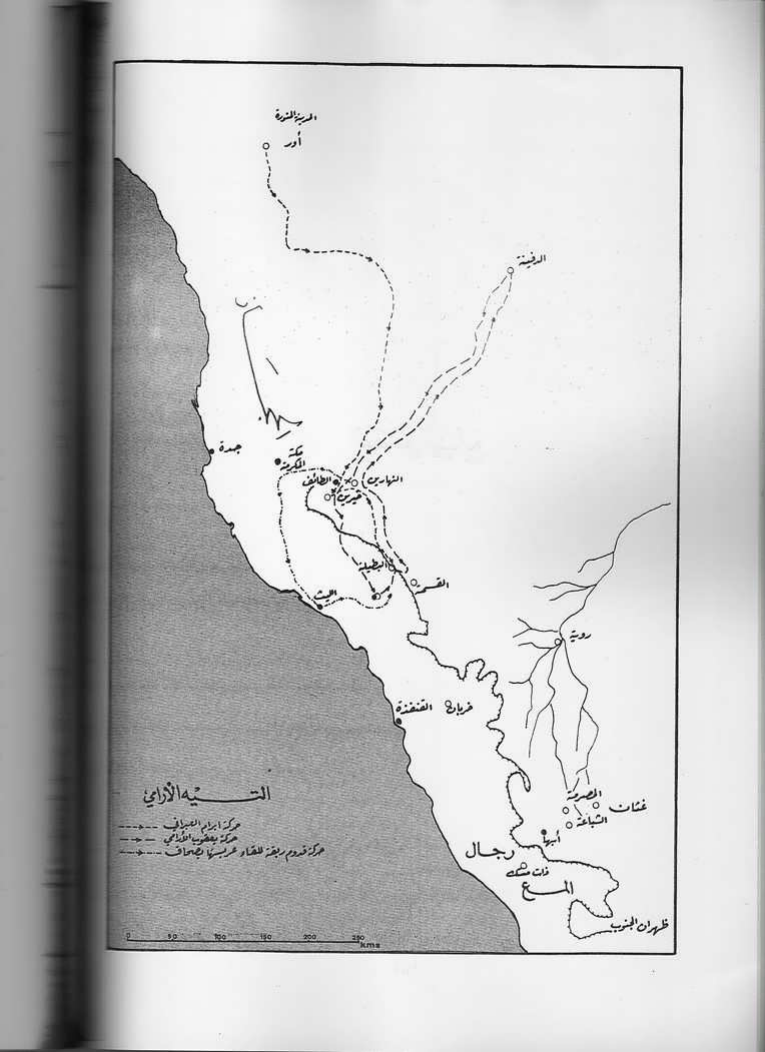 المدينة المنورة
أور
الدفينة
جدة
مكة
المكرمة
الطائف
النهارين
البطيلة
الليث
روية
القنفذة
خربان
المصرمة
غثان
الشباعة
أبها
رجال
ألمـــع
ظهران الجنوب
التـــيه الأرامي
حركة ابرام العبراني
حركة يعقوب الأرامي
حركة قدوم ربقة للقاء عريسها يصحاف
0 50 100 150 200 250
kms